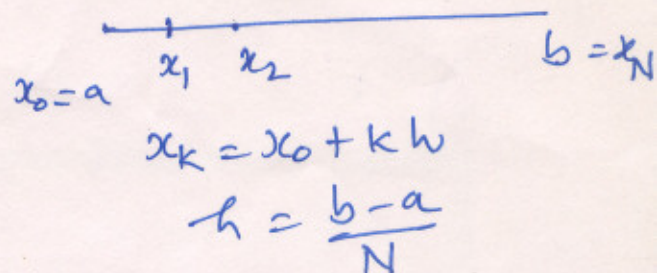 x₀ = a x₁ x₂ b = x_N
x_K = x₀ + K h
h = \frac{b - a}{N}